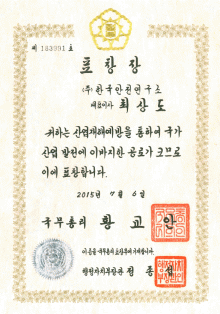 제 183991 호
표 창 장
(주)한국안전연구소
대표이사 최 상 도
귀하는 산업재해예방을 통하여 국가
산업 발전에 이바지한 공로가 크므로
이에 표창합니다.
2015년 7월 6일
국무총리 황 교 안
이 증을 국무총리표창부에 기입합니다.
행정자치부장관 정 종 섭